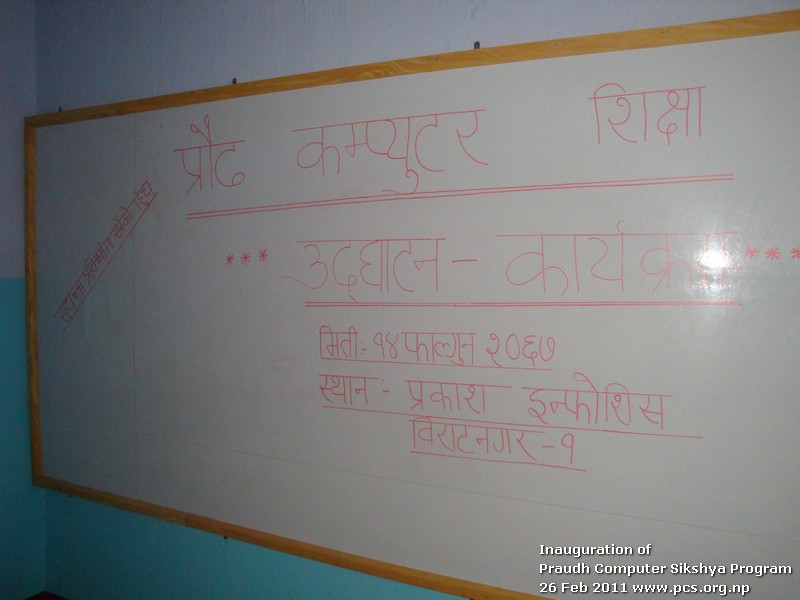 प्रौढ कम्प्युटर शिक्षा
सूचना प्रविधीमा सबैको पहुँच
*** उद्घाटन - कार्यक्रम ***
मिती:- १४ फाल्गुन २०६७
स्थान:- प्रकाश इन्फोशिस
विराटनगर - १
Inauguration of
Praudh Computer Sikshya Program
26 Feb 2011 www.pcs.org.np